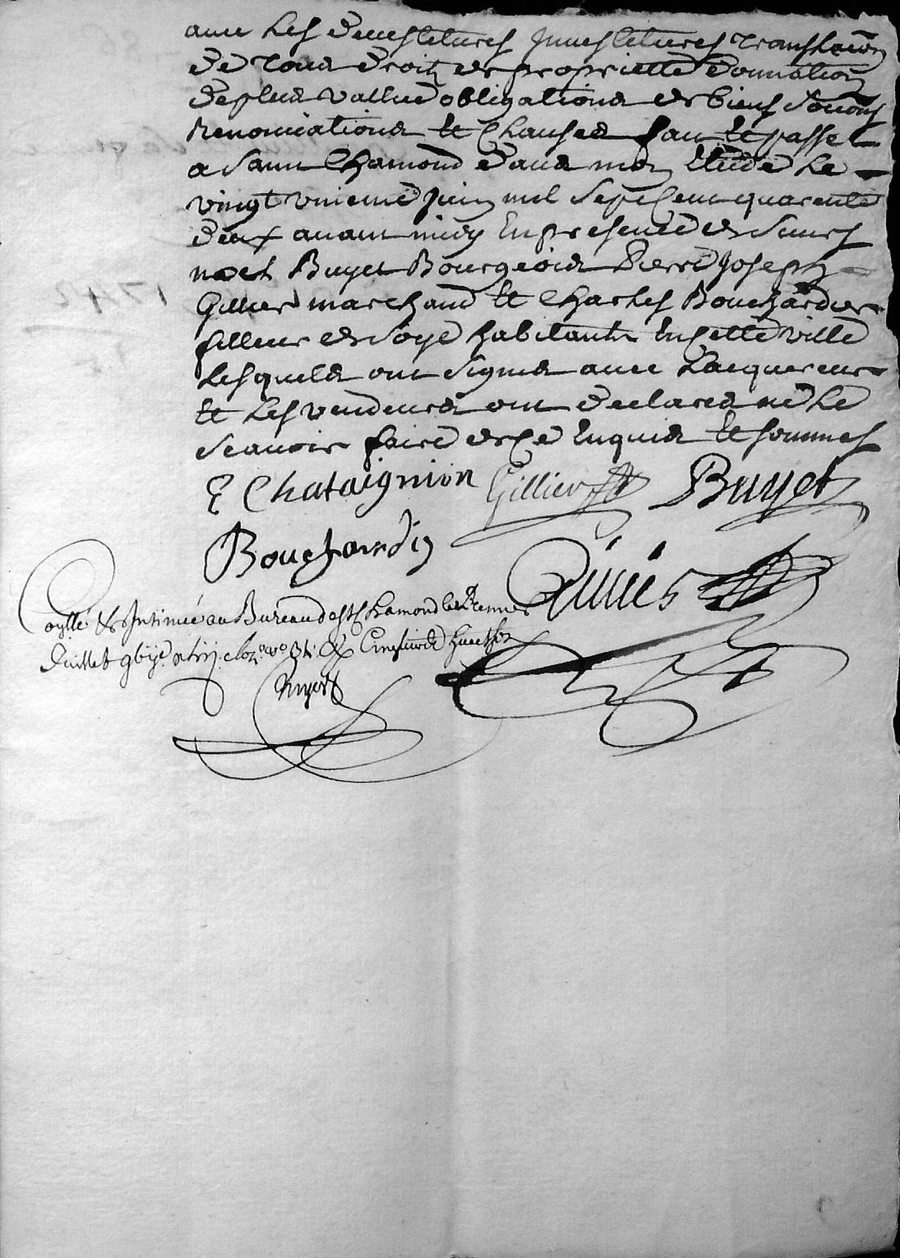 avec les devestitures Investitures translation
de tous droits de proprietté donnation
de plus vallue obligations de biens
Renonciations et Clauses fait et passé
a Saint Chamond dans mon Etude le
vingt unieme juin mil sept cent quarente
deux avant midy En presence de sieurs
noel Buyet Bourgeois Pierre Joseph
Gillier marchand et Charles Bouchardier
filleur de soye habitants En cette ville
Lesquels ont signés avec Lacquereur
et Les vendeurs ont declarés ne le
scavoir faire de ce Enquis et sommes
E Chataignion Gillier Buyet
Bouchardi
Finiés
au Bureau de St Chamond le
Juillet
1742
86